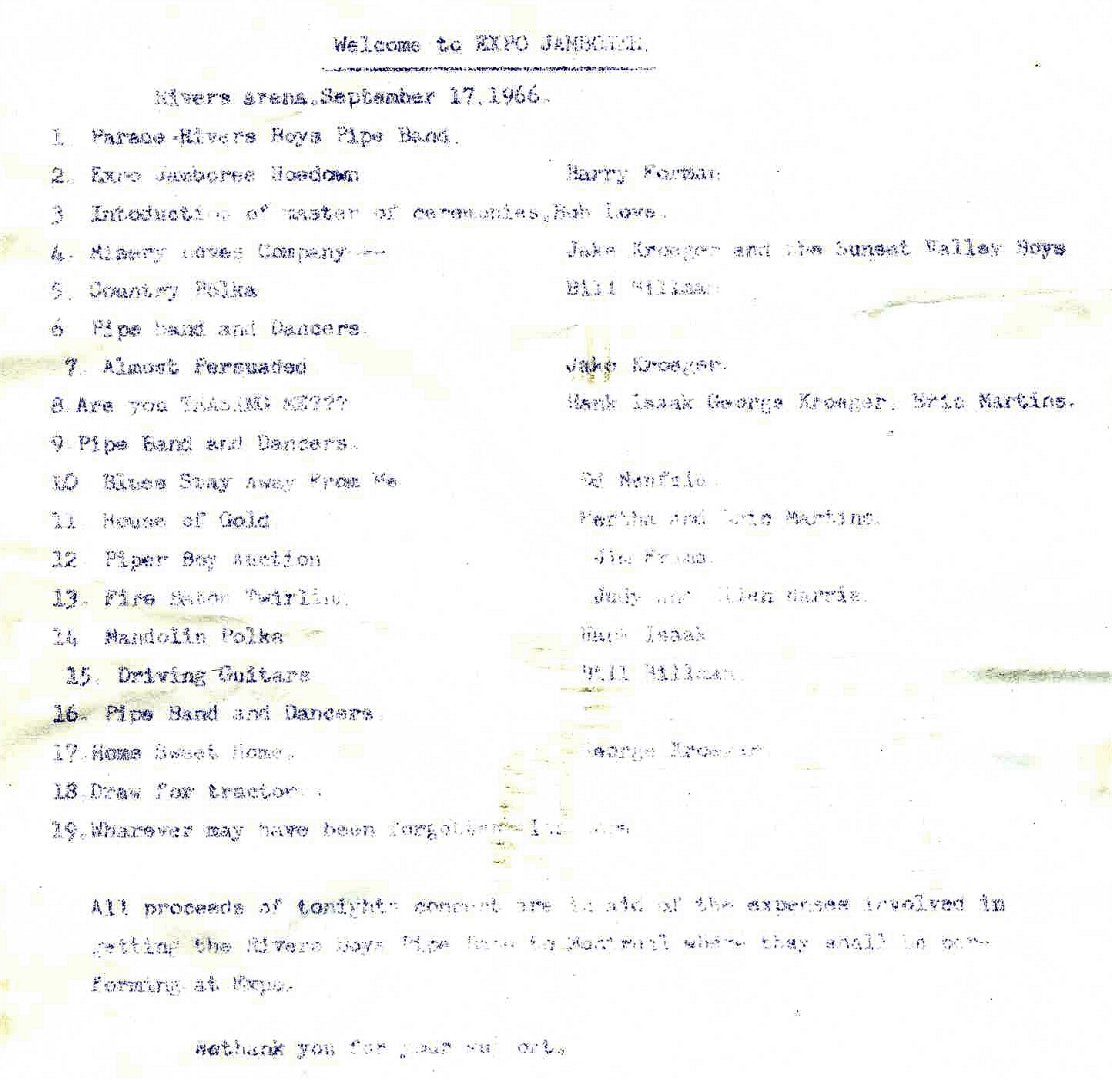 Welcome to EXPO JAMBOREE.
Rivers arena,September 17,1966.
1 Parade-Rivers Boys Pipe Band.
2. Expo Jamboree Hoedown Harry Forman
3 Intoduction of master of ceremonies,Bob Love.
4. Misery Loves Company--- Jake Kroeger and the Sunset Valley Boys
5. Country Polka Bill Hillman
6 Pipe band and Dancers.
7. Almost Persuaded Jake Kroeger.
8.Are you TEASING ME??? Hank Isaak George Kroeger, Eric Martins.
9.Pipe Band and Dancers.
10 Blues Stay Away From Me Ed
11 House of Gold Bertha and Eric Martins.
12 Piper Boy auction Jim
13. Fire Baton Twirling. Judy and Ellen Harris.
14 Mandolin Polka Hank Isaak
15. Driving Guitars Bill Hillman.
16. Pipe Band and Dancers.
17.Home Sweet Home. George Kroeger
18.Draw for tractor.
19.Wharever may have been forgotten
All proceeds of tonights concert are in aid of the expenses involved in
getting the Rivers Boys Pipe Band to Montreal where they shall be per-
forming at Expo.
Wethank you for your support.